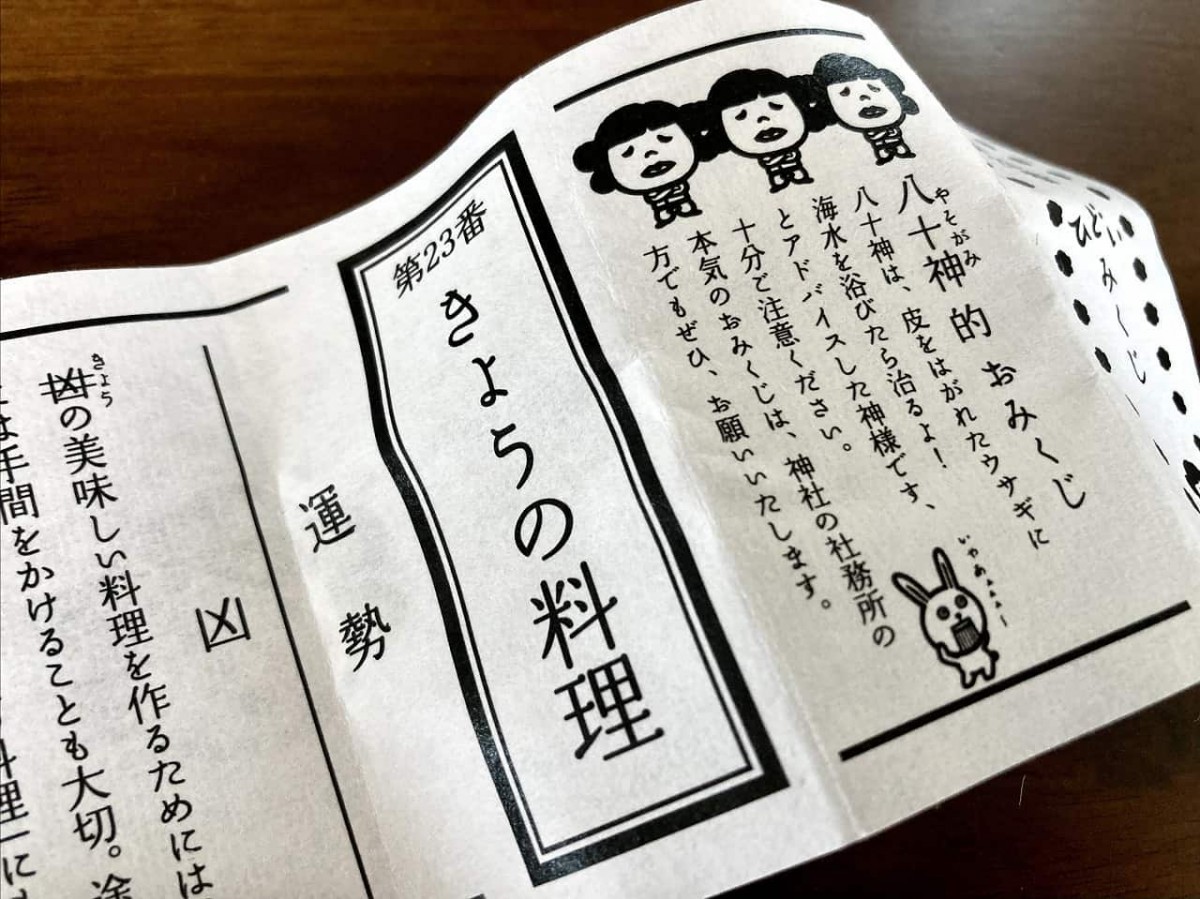 ひどいみくじ
八十神的おみくじ
やそがみ
八十神は、皮をはがれたウサギに
海水を浴びたら治るよ！
とアドバイスした神様です、
十分ご注意ください。
本気のおみくじは、神社の社務所の
方でもぜひ、お願いいたします。
いやあぁぁぁ〜
第23番
きょうの料理
運勢
凶
きょう
凶の美味しい料理を作るためには
は手間をかけることも大切。途
料理」に